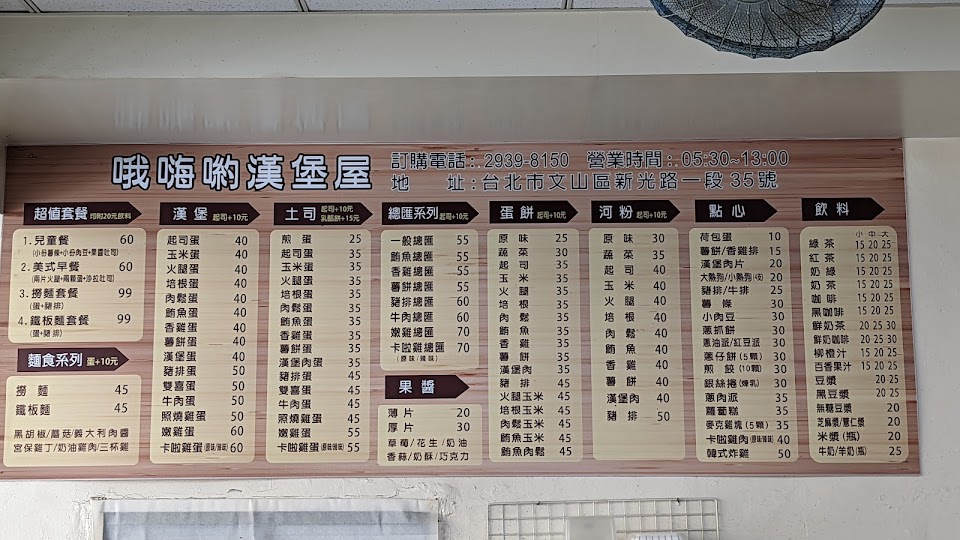 哦嗨喲漢堡屋
訂購電話:. 2939-8150 營業時間:. 05:30~13:00
地 址:台北市文山區新光路一段35號
超值套餐 均附20元飲料
1.兒童餐 60
(小份薯條+小份肉豆+果醬吐司)
2.美式早餐 60
(兩片火腿+兩顆蛋+沙拉吐司)
3.撈麵套餐 99
(蛋+豬排)
4.鐵板麵套餐 99
(蛋+豬排)
麵食系列 蛋+10元
撈麵 45
鐵板麵 45
黑胡椒/蘑菇/義大利肉醬
宮保雞丁/奶油雞肉/三杯雞
漢堡 起司+10元
起司蛋 40
玉米蛋 40
火腿蛋 40
培根蛋 40
肉鬆蛋 40
鮪魚蛋 40
香雞蛋 40
薯餅蛋 40
漢堡蛋 40
豬排蛋 50
雙喜蛋 50
牛肉蛋 50
照燒雞蛋 50
嫩雞蛋 60
卡啦雞蛋(原味/辣味) 60
土司 起司+10元 乳酪餅+15元
煎蛋 25
起司蛋 35
玉米蛋 35
火腿蛋 35
培根蛋 35
肉鬆蛋 35
鮪魚蛋 35
香雞蛋 35
薯餅蛋 35
漢堡肉蛋 35
豬排蛋 45
雙喜蛋 45
牛肉蛋 45
照燒雞蛋 45
嫩雞蛋 55
卡啦雞蛋(原味/辣味) 55
總匯系列 起司+10元
一般總匯 55
鮪魚總匯 55
香雞總匯 55
薯餅總匯 55
豬排總匯 60
牛肉總匯 60
嫩雞總匯 70
卡啦雞總匯 70
(原味/辣味)
果醬
薄片 20
厚片 30
草莓/花生/奶油
香蒜/奶酥/巧克力
蛋餅 起司+10元
原味 25
蔬菜 30
起司 35
玉米 35
火腿 35
培根 35
肉鬆 35
鮪魚 35
香雞 35
薯餅 35
漢堡肉 35
豬排 45
火腿玉米 45
培根玉米 45
肉鬆玉米 45
鮪魚玉米 45
鮪魚肉鬆 45
河粉 起司+10元
原味 30
蔬菜 35
起司 40
玉米 40
火腿 40
培根 40
肉鬆 40
鮪魚 40
香雞 40
薯餅 40
漢堡肉 40
豬排 50
點心
荷包蛋 10
薯餅/香雞排 15
漢堡肉片 20
大熱狗/小熱狗(3支) 20
豬排/牛排 25
薯條 30
小肉豆 30
蔥抓餅 30
蔥油派/紅豆派 30
蔥仔餅(5顆) 30
煎餃(10顆) 30
銀絲捲(煉乳) 30
蔥肉派 35
蘿蔔糕 35
麥克雞塊(5顆) 35
卡啦雞肉(原味/辣味) 40
韓式炸雞 50
飲料
小 中 大
綠茶 15 20 25
紅茶 15 20 25
奶綠 15 20 25
奶茶 15 20 25
咖啡 15 20 25
黑咖啡 15 20 25
鮮奶茶 20 25 30
鮮奶咖啡 20 25 30
柳橙汁 15 20 25
百香果汁 15 20 25
豆漿 20 25
黑豆漿 20 25
無糖豆漿 20
芝麻漿/薏仁漿 20
米漿(瓶) 20
牛奶/羊奶(瓶) 25